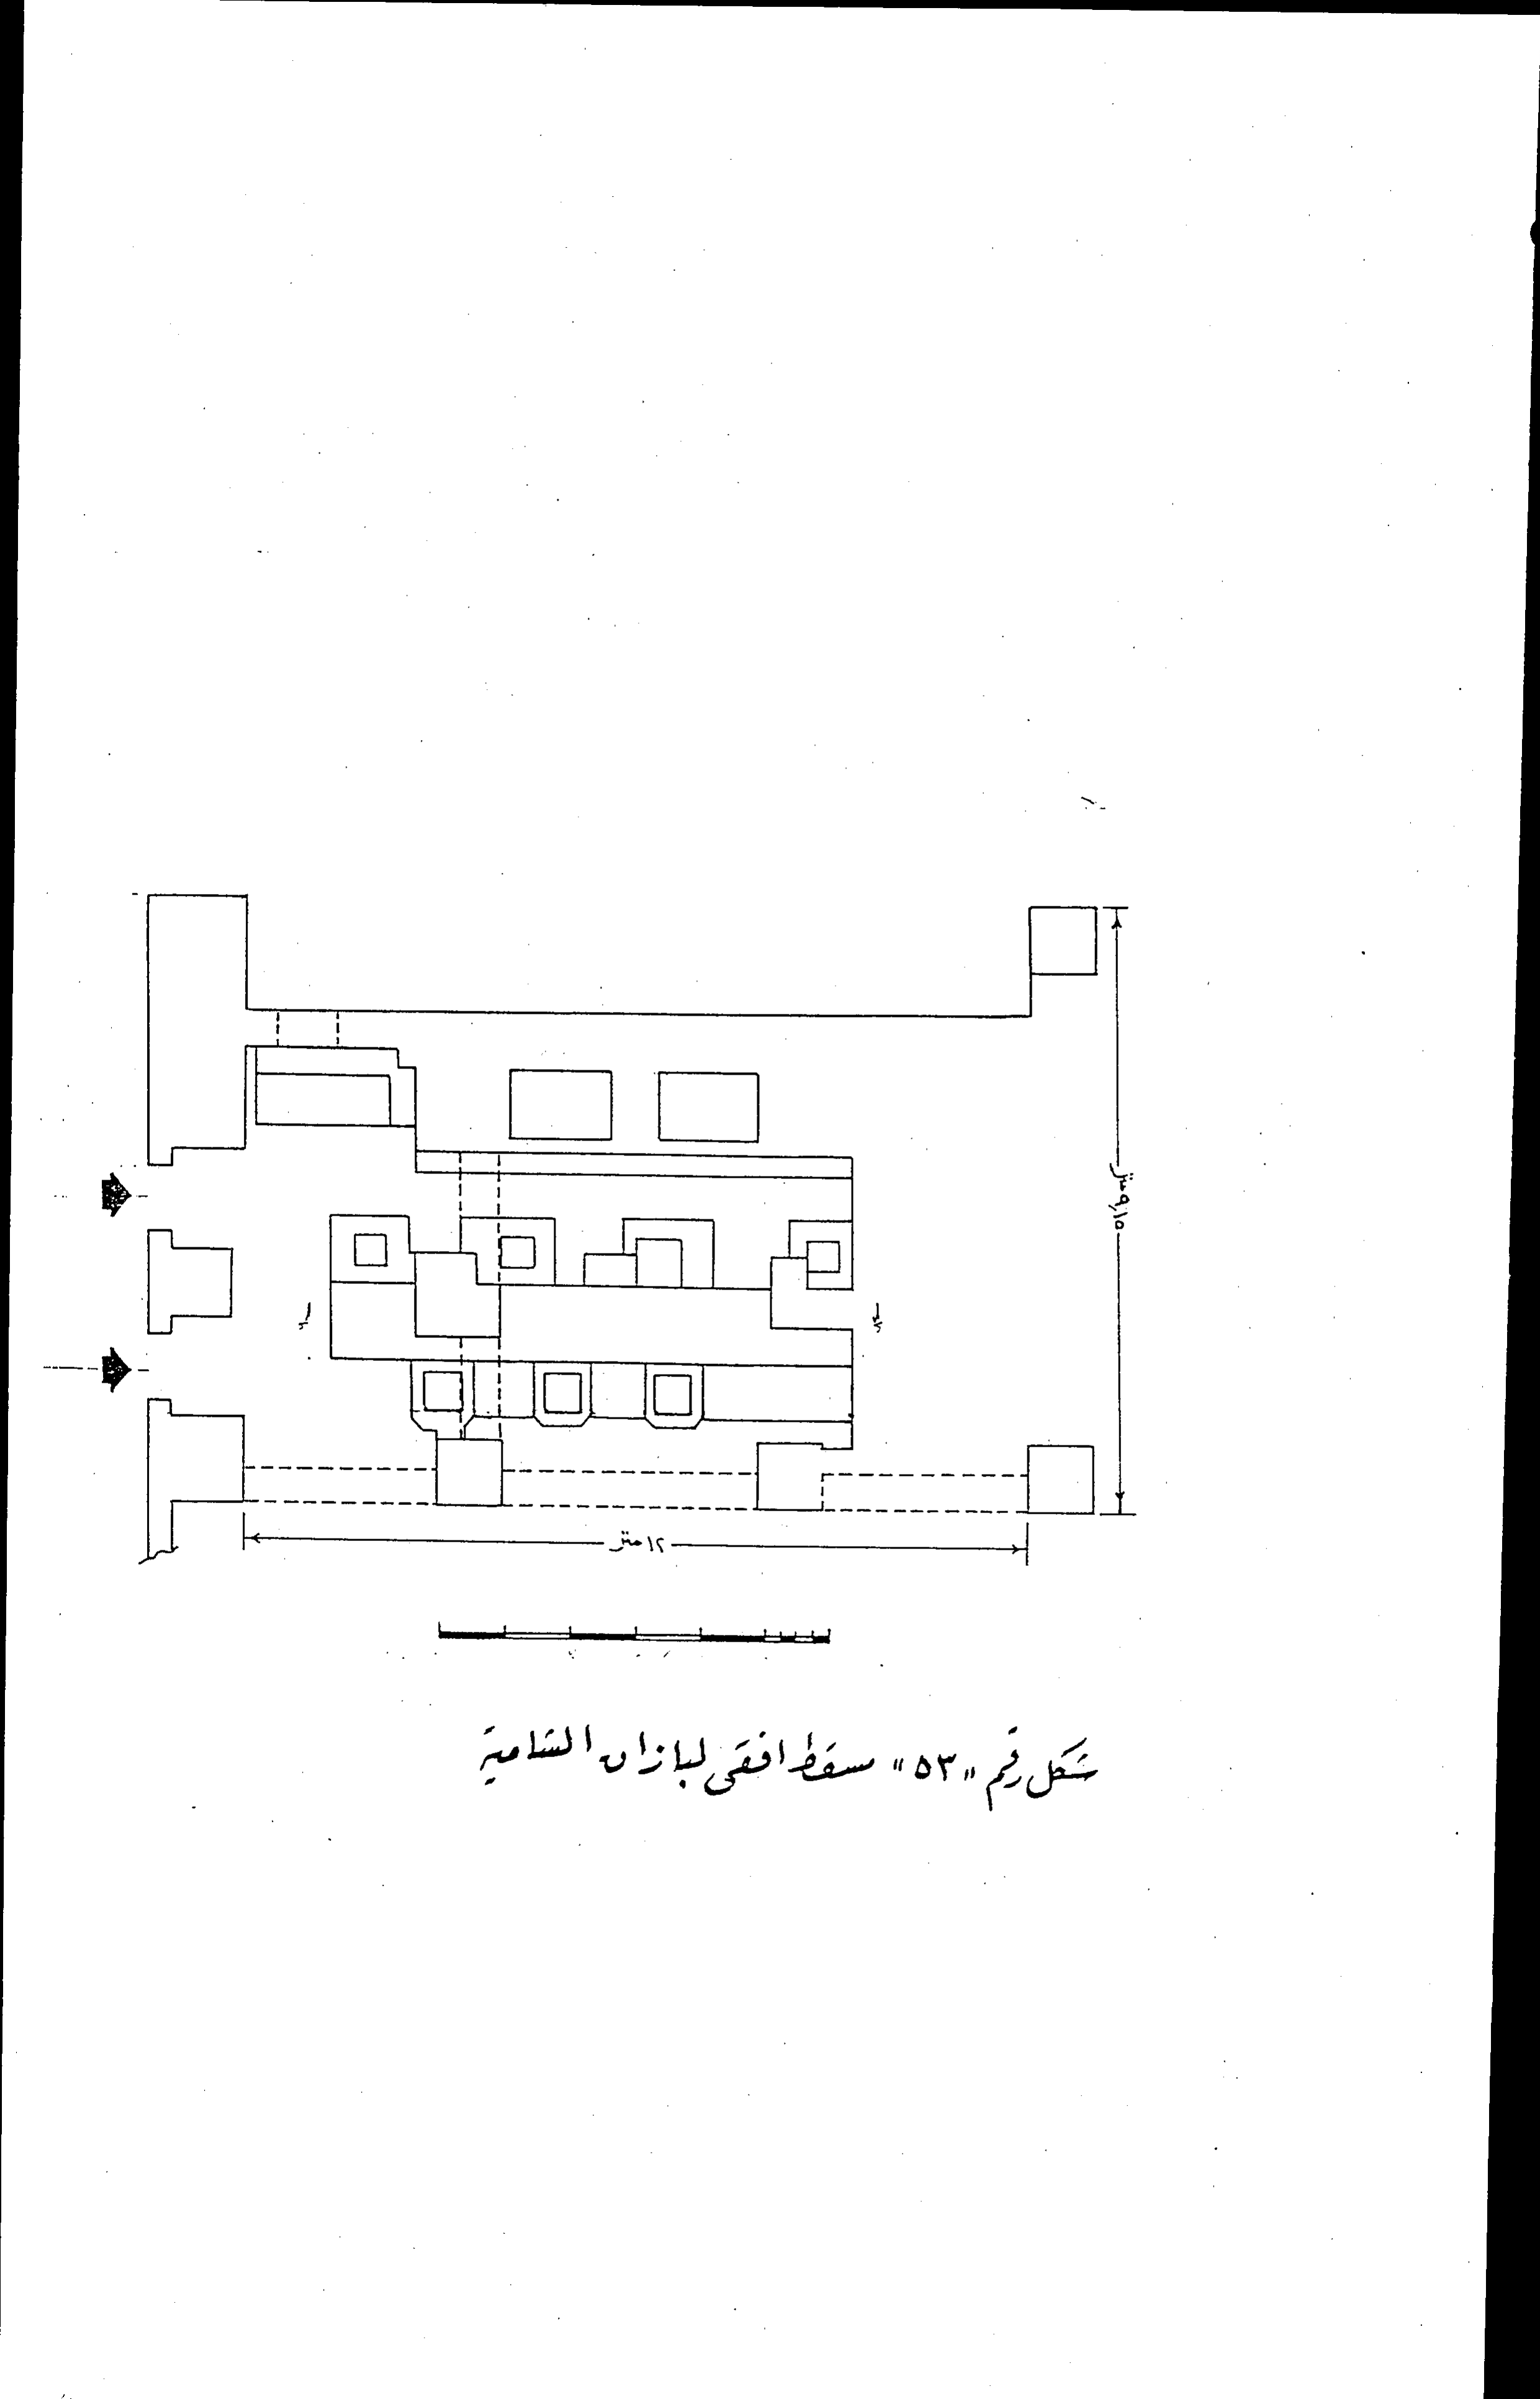 ٩٫١٥ متر
١٢ متر
شكل رقم "٥٣" مسقط افقى لبازان الشامية